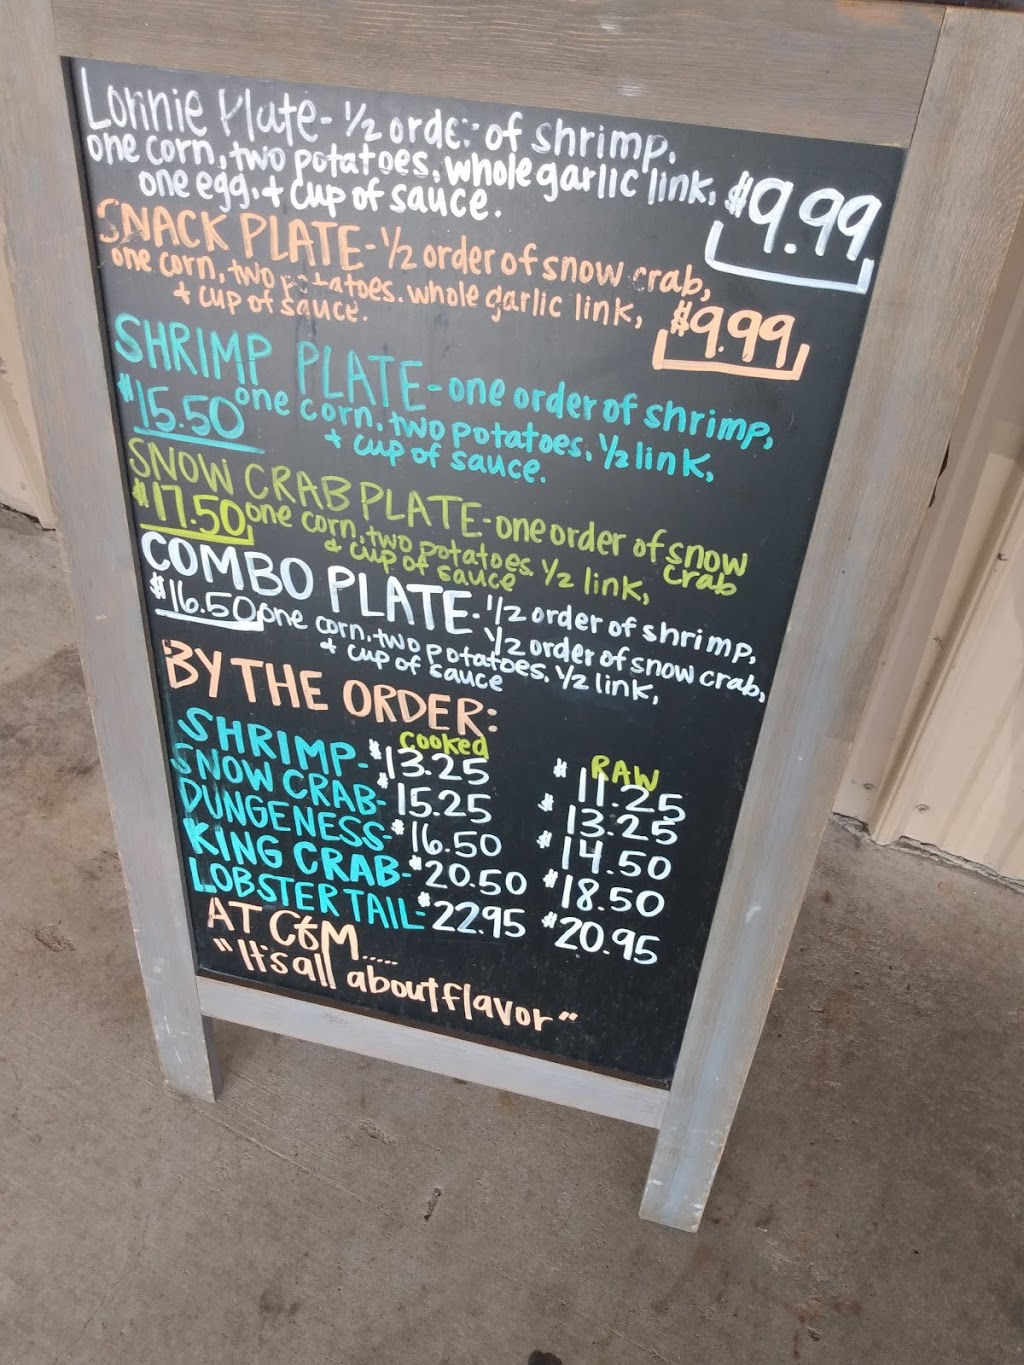 Lonnie Plate - 1/2 order of shrimp,
one corn, two potatoes, whole garlic link, $9.99
one egg, + cup of sauce.
SNACK PLATE - 1/2 order of snow crab,
one corn, two potatoes, whole garlic link, $9.99
+ cup of sauce.
SHRIMP PLATE - one order of shrimp,
$15.50 one corn, two potatoes, 1/2 link,
+ cup of sauce.
SNOW CRAB PLATE - one order of snow crab
$17.50 one corn, two potatoes, 1/2 link,
+ cup of sauce
COMBO PLATE - 1/2 order of shrimp,
1/2 order of snow crab,
$16.50 one corn, two potatoes, 1/2 link,
+ cup of sauce
BY THE ORDER:
cooked RAW
SHRIMP - $13.25 $11.25
SNOW CRAB - $15.25 $13.25
DUNGENESS - $16.50 $14.50
KING CRAB - $20.50 $18.50
LOBSTER TAIL - $22.95 $20.95
AT C&M.....
"It's all about flavor"